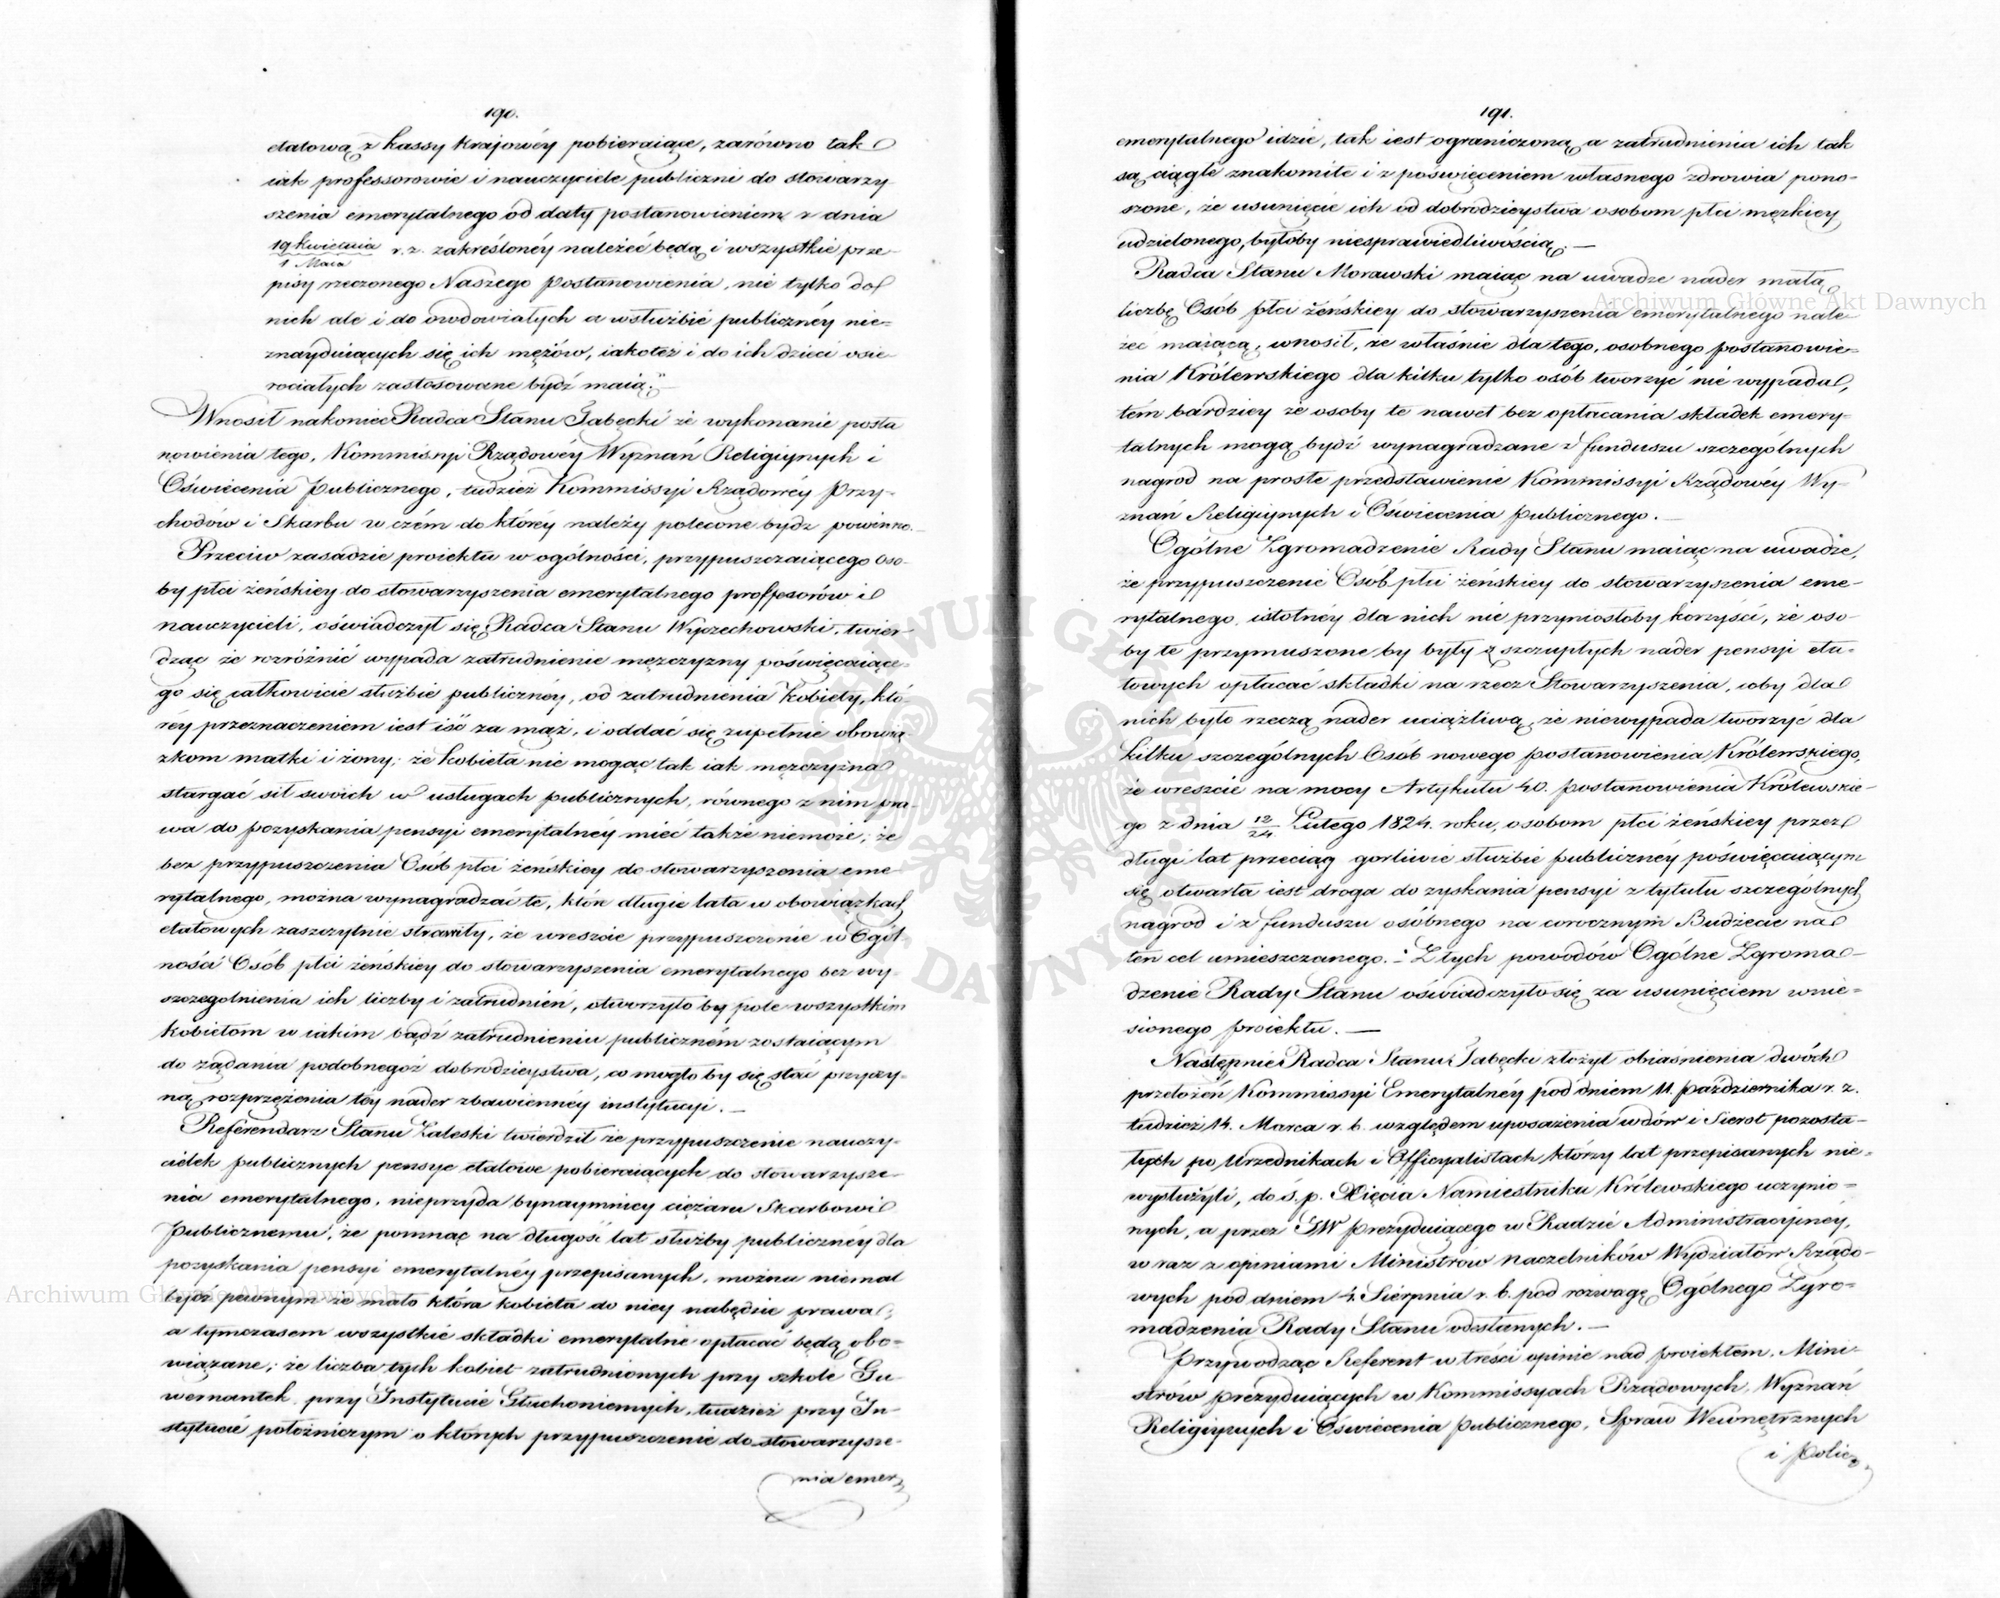 190.
etatową z kassy krajowéy pobieraiące, zarówno tak
iak professorowie i nauczyciele publiczni do stowarzy-
szenia emerytalnego od daty postanowieniem z dnia
19 kwietnia / 1 Maia r. z. zakreślonéy należeć będą i wszystkie prze-
pisy rzeczonego Naszego Postanowienia, nie tylko do
nich ale i do owdowiałych a w służbie publicznéy nie-
znayduiących się ich mężów, iakoteż i do ich dzieci osie-
rociałych zastosowane bydź maią."
Wnosił nakoniec Radca Stanu Jabęcki że wykonanie posta
nowienia tego, Kommissyi Rządowéy Wyznań Religiynych i
Oświecenia Publicznego, tudzież Kommissyi Rządowéy Przy-
chodów i Skarbu w czém do któréy należy polecone bydź powinno.
Przeciw zasadzie proiektu w ogólności, przypuszczaiącego oso-
by płci żeńskiey do stowarzyszenia emerytalnego proffesorów i
nauczycieli, oświadczył się Radca Stanu Wyczechowski, twier-
dząc że rozróżnić wypada zatrudnienie mężczyzny poświęcaiące-
go się całkowicie służbie publicznéy, od zatrudnienia Kobiety, któ-
réy przeznaczeniem iest iść za mąż, i oddać się zupełnie obowią-
zkom matki i żony; że kobieta nie mogąc tak iak mężczyzna
stargać sił swoich w usługach publicznych, równego z nim pra-
wa do pozyskania pensyi emerytalnéy mieć także niemoże; że
bez przypuszczenia Osób płci żeńskiey do stowarzyszenia eme-
rytalnego, można wynagradzać te, które długie lata w obowiązkach
etatowych zaszczytnie strawiły, że wreszcie przypuszczenie w Ogól-
ności Osób płci żeńskiey do stowarzyszenia emerytalnego bez wy-
szczególnienia ich liczby i zatrudnień, otworzyło by pole wszystkim
kobietom w iakim bądź zatrudnieniu publiczném zostaiącym
do żądania podobnegoż dobrodzieystwa, co mogło by się stać przyczy-
ną rozprzężenia téy nader zbawienney instytucyi. —
Referendarz Stanu Zaleski twierdził że przypuszczenie nauczy-
cielek publicznych pensye etatowe pobieraiących do stowarzysze-
nia emerytalnego, nieprzyda bynaymniey ciężaru Skarbowi
Publicznemu, że pomnąc na długość lat służby publicznéy dla
pozyskania pensyi emerytalnéy przepisanych, można niemal
bydź pewnym że mało która kobieta do niey nabędzie prawa;
a tymczasem wszystkie składki emerytalne opłacać będą obo-
wiązane; że liczba tych kobiet zatrudnionych przy szkole Gu-
wernantek, przy Instytucie Głuchoniemych, tudzież przy In-
stytucie położniczym o których przypuszczenie do stowarzysze-
nia emer
191.
emerytalnego idzie, tak iest ograniczoną a zatrudnienia ich tak
są ciągłe znakomite i z poświęceniem własnego zdrowia pono-
szone, że usunięcie ich od dobrodzieystwa osobom płci męzkiey
udzielonego, byłoby niesprawiedliwością. —
Radca Stanu Morawski maiąc na uwadze nader małą
liczbę Osób płci żeńskiey do stowarzyszenia emerytalnego nale-
żeć maiącą, wnosił, że właśnie dla tego, osobnego postanowie-
nia Królewskiego dla kilku tylko osób tworzyć nie wypada,
tém bardziey że osoby te nawet bez opłacania składek emery-
talnych mogą bydź wynagradzane z funduszu szczególnych
nagród na proste przedstawienie Kommissyi Rządowéy Wy-
znań Religiynych i Oświecenia Publicznego. —
Ogólne Zgromadzenie Rady Stanu maiąc na uwadze,
że przypuszczenie Osób płci żeńskiey do stowarzyszenia eme-
rytalnego, istotnéy dla nich nie przyniosłoby korzyści, że oso-
by te przymuszone by były z szczupłych nader pensyi eta-
towych opłacać składki na rzecz Stowarzyszenia, coby dla
nich było rzeczą nader uciążliwą, że niewypada tworzyć dla
kilku szczególnych Osób nowego postanowienia Królewskiego,
że wreszcie na mocy Artykułu 40. postanowienia Królewskie-
go z dnia 12/24. Lutego 1824. roku, osobom płci żeńskiey przez
długi lat przeciąg gorliwie służbie publicznéy poświęcaiącym
się otwarta iest droga do zyskania pensyi z tytułu szczególnych
nagród i z funduszu osóbnego na corocznym Budżecie na
ten cel umieszczanego. Z tych powodów Ogólne Zgroma-
dzenie Rady Stanu oświadczyło się za usunięciem wnie-
sionego proiektu. —
Następnie Radca Stanu Jabęcki złożył obiaśnienia dwóch
przełożeń Kommissyi Emerytalnéy pod dniem 11. Października r. z.
tudzież 14. Marca r. b. względem uposażenia wdów i Sierot pozosta-
łych po Urzędnikach i Officyalistach, którzy lat przepisanych nie-
wysłużyli, do ś. p. Xięcia Namiestnika Królewskiego uczynio-
nych, a przez JW Prezyduiącego w Radzie Administracyiney,
w raz z opiniami Ministrów Naczelników Wydziałów Rządo-
wych pod dniem 4. Sierpnia r. b. pod rozwagę Ogólnego Zgro-
madzenia Rady Stanu odesłanych. —
Przywodząc Referent w treści opinie nad proiektem, Mini-
strów prezyduiących w Kommissyach Rządowych, Wyznań
Religiynych i Oświecenia Publicznego, Spraw Wewnętrznych
i Polic
Archiwum Główne Akt Dawnych
Archiwum Główne Akt Dawnych
ARCHIWUM GŁÓWNE AKT DAWNYCH